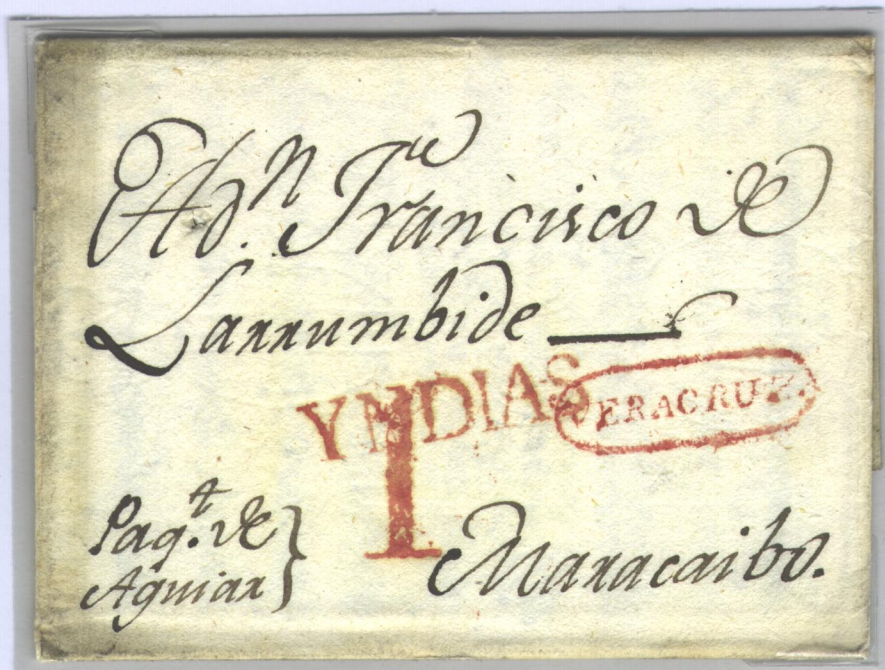 A Dn. Francisco de
Larrumbide
YNDIAS
VERACRUZ.
1
Paqt. de
Aguiar
Maracaibo.